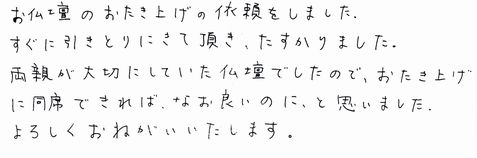 お仏壇のおたき上げの依頼をしました.
すぐに引きとりにきて頂き、たすかりました。
両親が大切にしていた仏壇でしたので、おたき上げ
に同席できれば、なお良いのに、と思いました.
よろしくおねがいいたします。